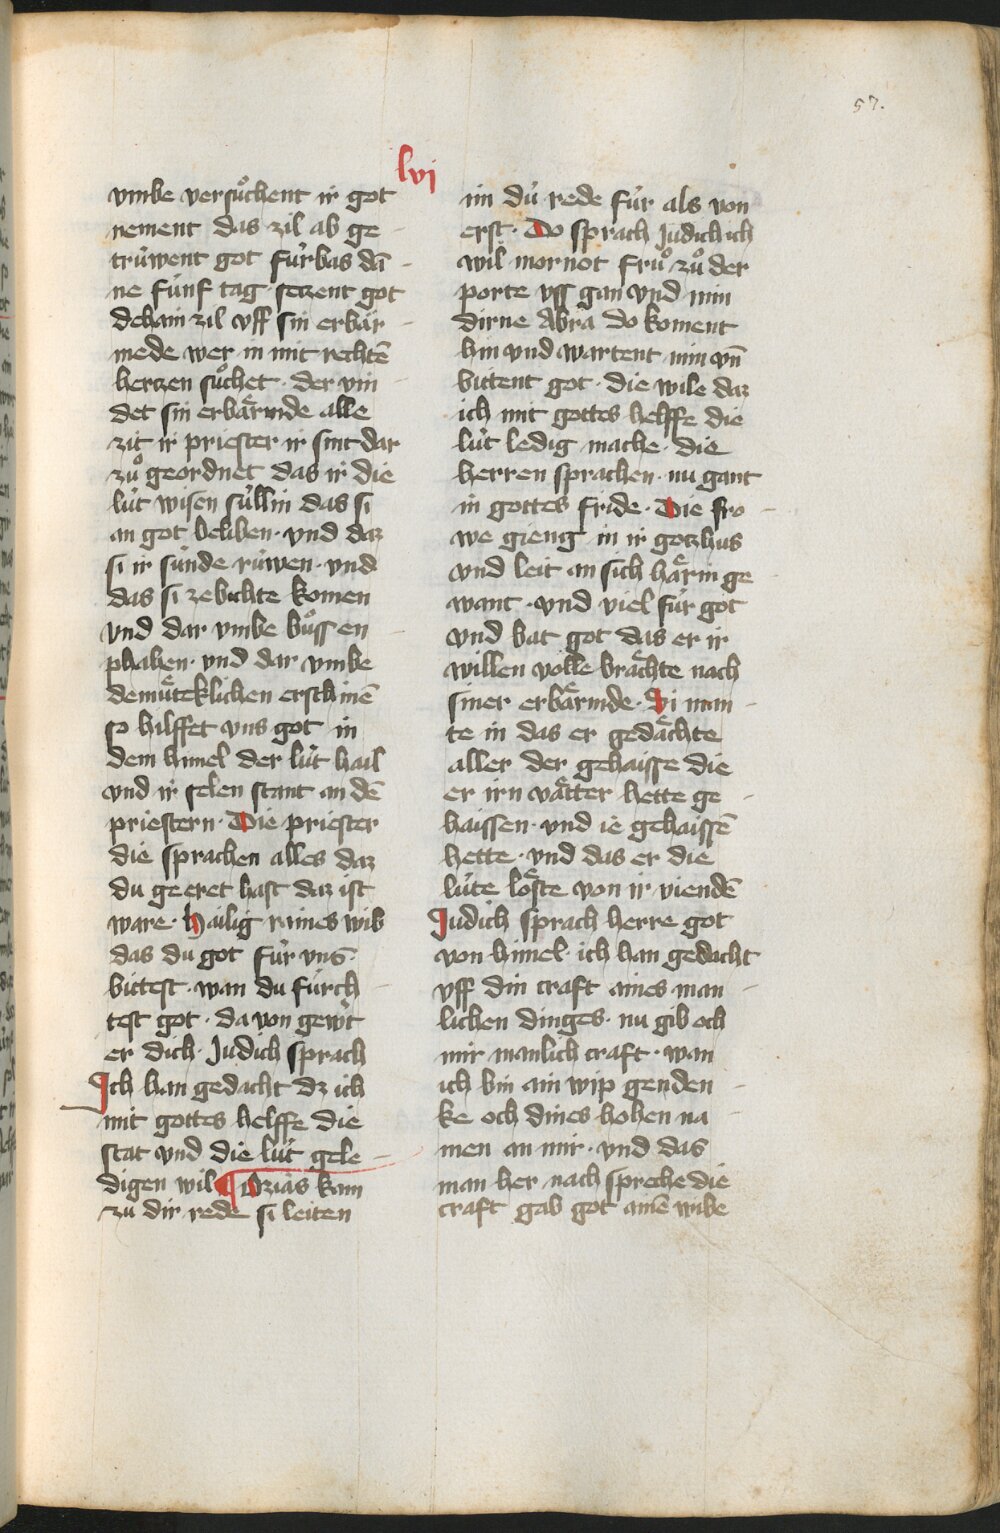 57.
lvi
vmbe versuͦchent ir got
nement das zil ab ge -
trúwent got fúrbas dā -
ne fúnf tag setzent got
dehain zil vff sin erbär -
mede wer in mit rechtē
hertzen suͦchet · der vin -
det sin erbaͤrmde alle
zit ir priester ir sint dar
zuͦ geordnet das ir die
lút wisen súllin das si
an got beliben · vnd daz
si ir súnde rúwen · vnd
das si ze bichte komen
vnd dar vmbe buͦss en -
phahen · vnd dar vmbe
demuͤteklichen erschinē
so hilffet vns got in
dem himel der lút hail
vnd ir selen stant an dē
priestern · Die priester
die sprachen alles daz
du geeret hast daz ist
ware · hailig raines wib
das du got fúr vns
bittest · wan du fúrch -
test got · da von gewert
er dich · Judich sprach
Ich han gedacht dz ich
mit gottes helffe die
stat vnd die lút gele -
digen wil ¶ Ozias kam
zu dir rede si leiten
im dú rede fúr als von
erst · Do sprach Judich ich
wil mornot fruͦ zuͦ der
porte vss gan vnd min
dirne Abra do koment
hin vnd wartent min vn̄
bittent got · die wile daz
ich mit gottes helffe die
lút ledig mache · die
herren sprachen · nu gant
in gottes fride · Die fro -
we gieng in ir gotzhus
vnd leit an sich haͤrin ge -
want · vnd viel fúr got
vnd bat got das er ir
willen volle braͤchte nach
siner erbaͤrmde · Si man -
te in das er gedaͤchte
aller der gehaisse die
er irn vaͤtter hette ge -
haissen · vnd ie gehaissē
hette · vnd das er die
lúte loͤste von ir viendē
Judich sprach herre got
von himel · ich han gedacht
vff din craft aines man -
lichen dinges · nu gib och
mir manlich craft · wan
ich bin ain wip genden -
ke och dines hohen na -
men an mir · vnd das
man her nach spreche die
craft gab got ainē wibe